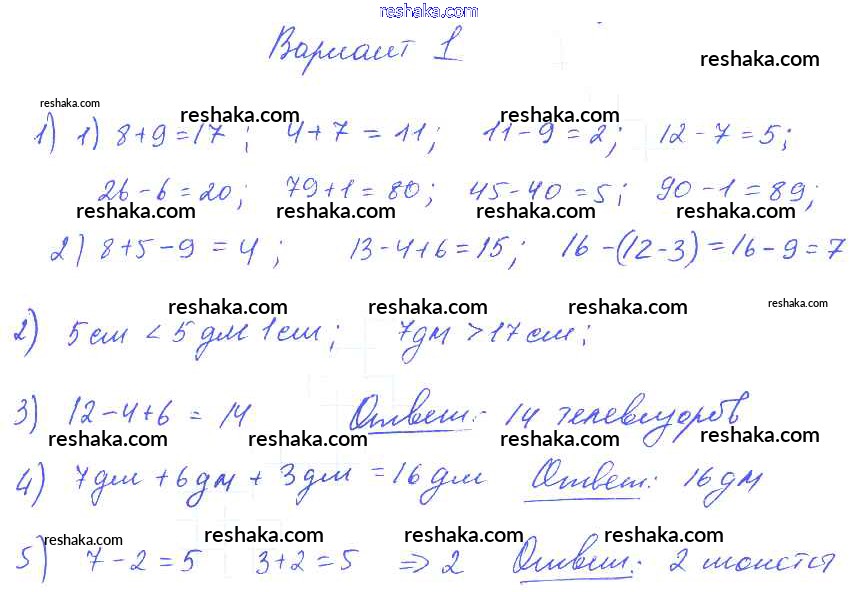 reshaka.com
Вариант 1
reshaka.com
reshaka.com reshaka.com reshaka.com
1) 1) 8+9=17; 4+7=11; 11-9=2; 12-7=5;
26-6=20; 79+1=80; 45-40=5; 90-1=89;
reshaka.com reshaka.com reshaka.com reshaka.com
2) 8+5-9=4; 13-4+6=15; 16-(12-3)=16-9=7
reshaka.com reshaka.com reshaka.com reshaka.com
2) 5см < 5дм 1см; 7дм > 17см;
3) 12-4+6=14 Ответ: 14 телевизоров
reshaka.com reshaka.com reshaka.com reshaka.com
4) 7дм+6дм+3дм=16дм Ответ: 16дм
reshaka.com reshaka.com reshaka.com reshaka.com
5) 7-2=5 3+2=5 => 2 Ответ: 2 монеты